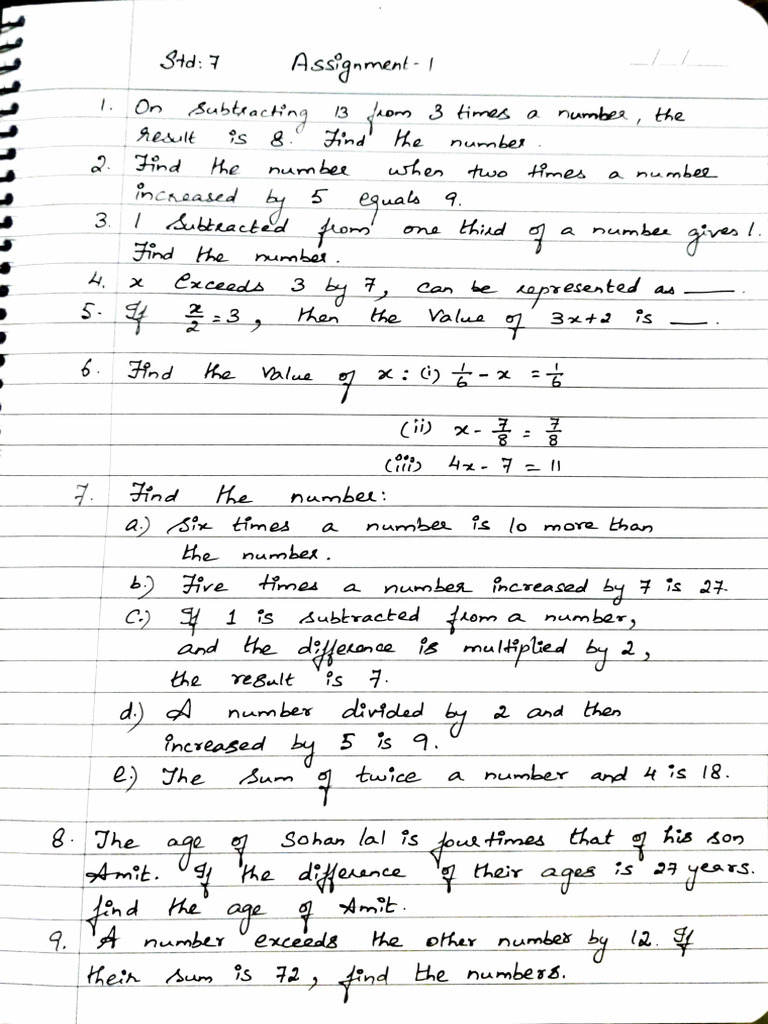 Std: 7 Assignment - 1 _/_/_
1. On subtracting 13 from 3 times a number, the
result is 8. Find the number.
2. Find the number when two times a number
increased by 5 equals 9.
3. 1 subtracted from one third of a number gives 1.
Find the number.
4. x exceeds 3 by 7, can be represented as ___.
5. If x/2 = 3, then the value of 3x+2 is ___.
6. Find the value of x: (i) 1/6 - x = 1/6
(ii) x - 7/8 = 7/8
(iii) 4x - 7 = 11
7. Find the number:
a.) Six times a number is 10 more than
the number.
b.) Five times a number increased by 7 is 27.
c.) If 1 is subtracted from a number,
and the difference is multiplied by 2,
the result is 7.
d.) A number divided by 2 and then
increased by 5 is 9.
e.) The sum of twice a number and 4 is 18.
8. The age of Sohan lal is four times that of his son
Amit. If the difference of their ages is 27 years.
find the age of Amit.
9. A number exceeds the other number by 12. If
their sum is 72, find the numbers.